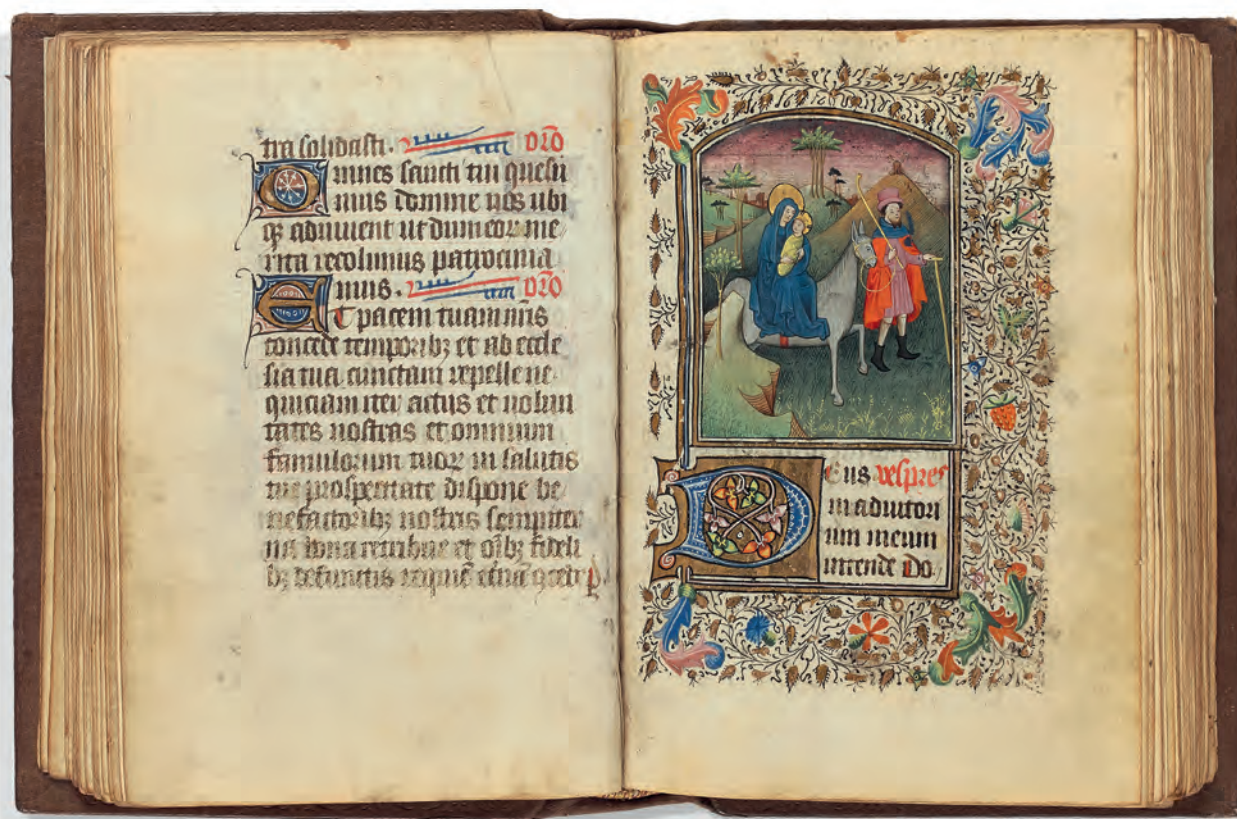 tra solidasti. oro
Omnes sancti tui quesu
mus domine nos ubi
qꝫ adiuuent ut dum eoꝝ me
rita recolimus patrocinia
mus. oro
Et pacem tuam nris
concede temporibꝫ et ab eccle
sia tua cunctam repelle ne
quiciam iter actus et uolun
tates nostras et omnium
famulorum tuoꝝ in salutis
tue prosperitate dispone be
nefactoribꝫ nostris sempiter
na bona retribue et oībꝫ fideli
bꝫ defunctis requiē p
Deus vespres
in adiutori
um meum
intende Do